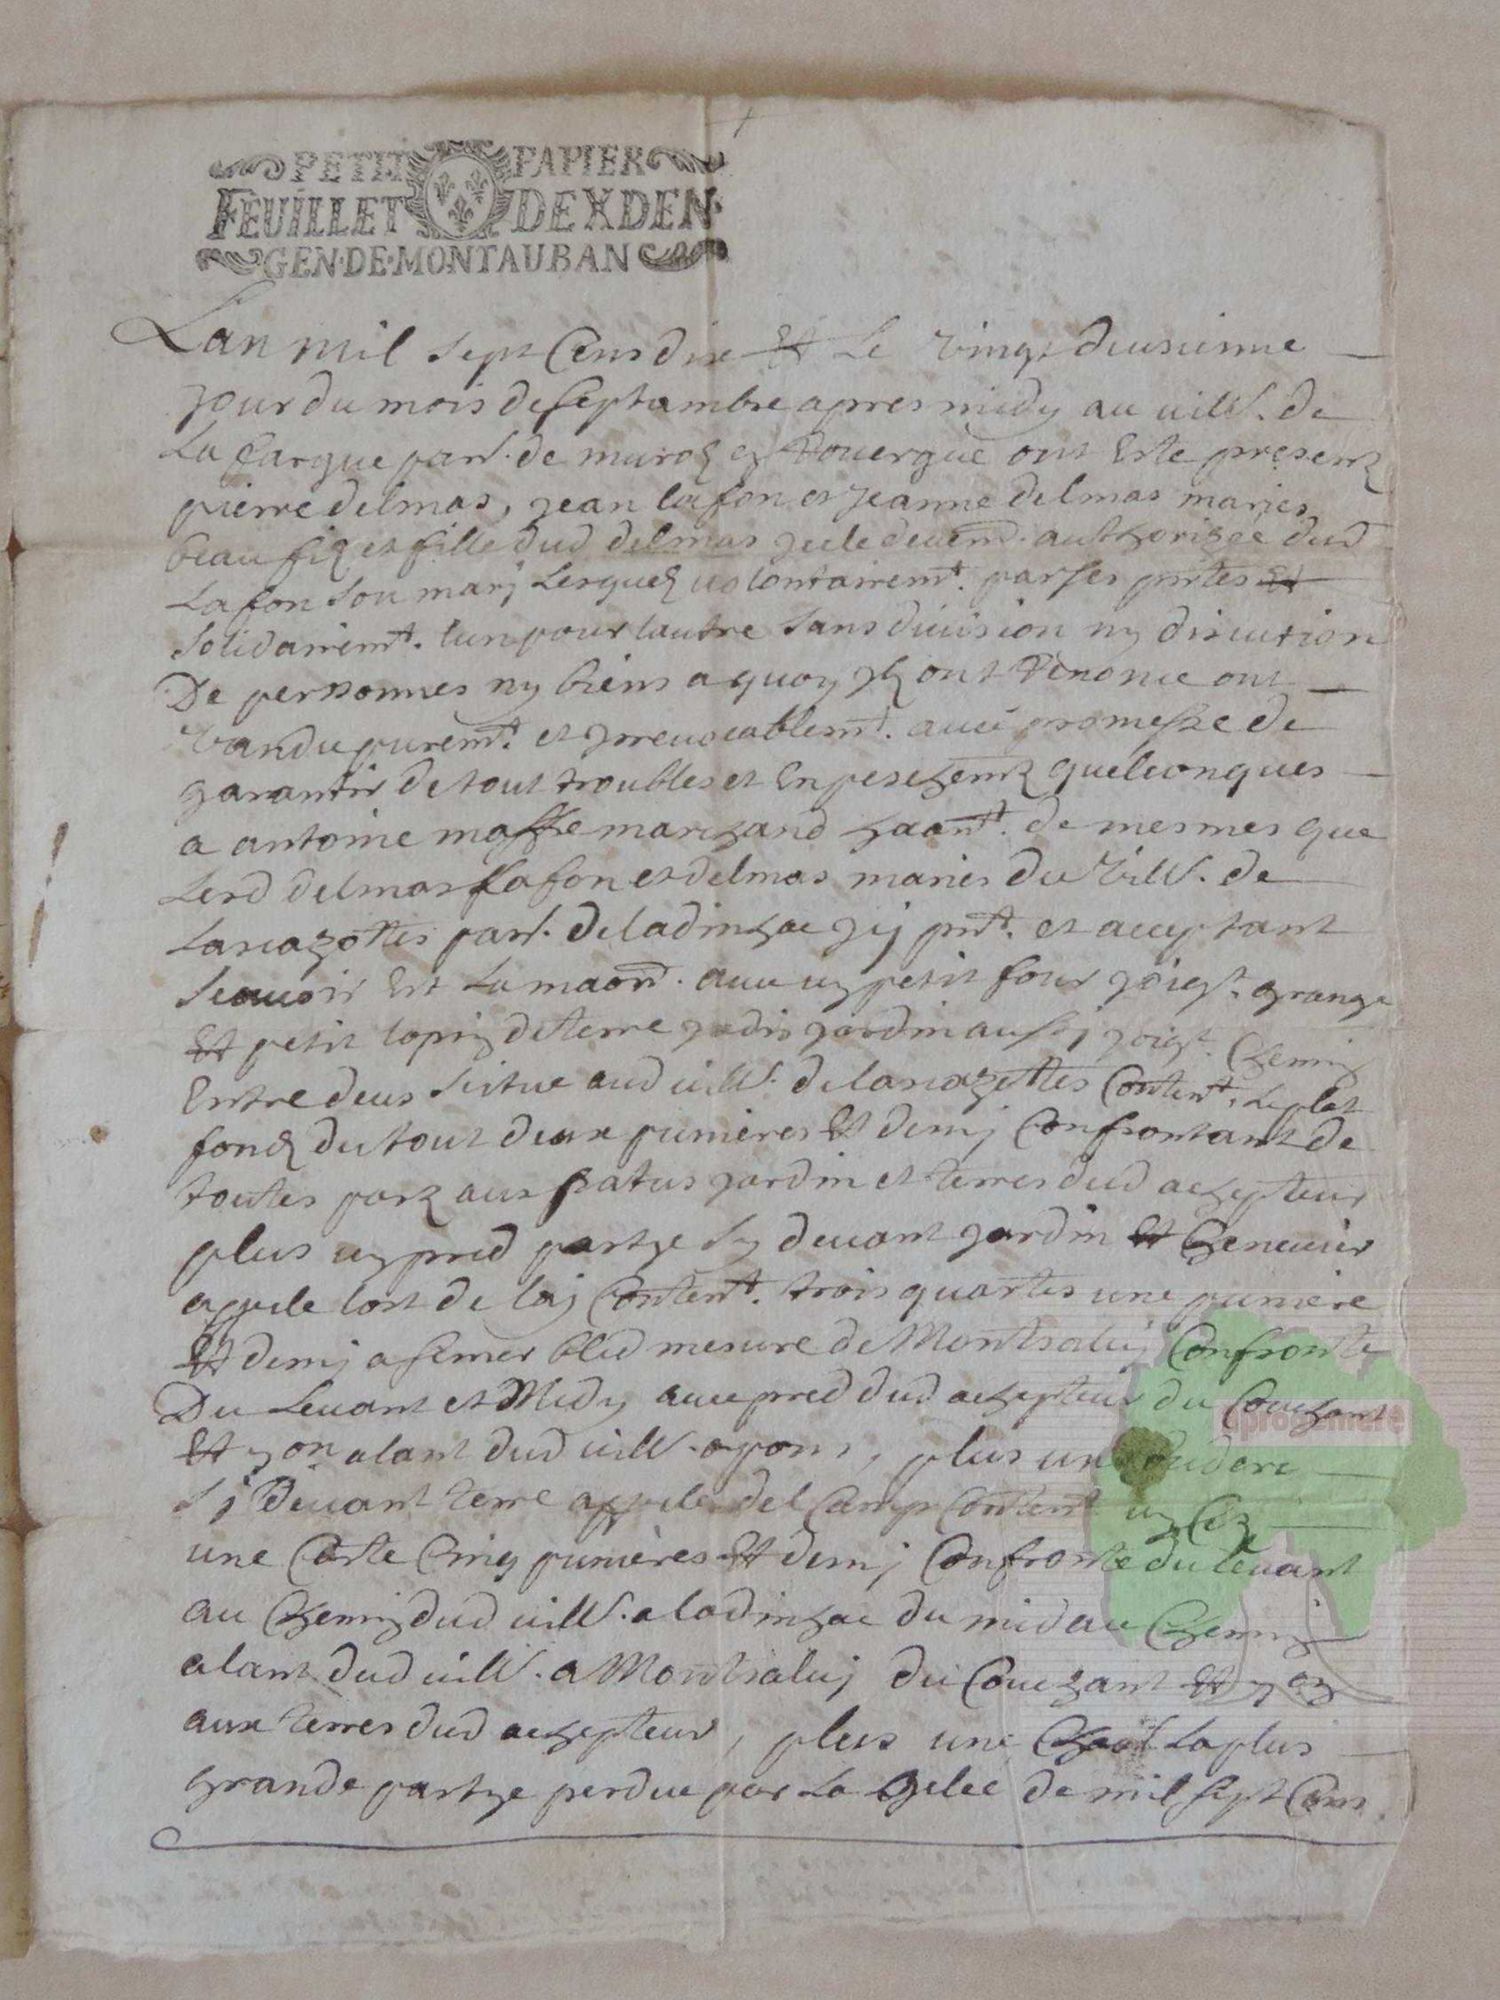 PETIT PAPIER
FEUILLET DE X DEN.
GEN·DE·MONTAUBAN
Lan mil sept Cens dix Et Le vingt deusieme
jour du mois de septambre apres midy au vill. de
La Cargue par. de murols en Rouergue ont Este presens
pierre delmas, jean lafon et jeanne delmas maries
beau fiz et fille dud delmas jcele deuem. authorizée dud
Lafon son marj Lesquels uolontairemt. par ses prntes Et
solidairemt. lun pour lautre sans diuision ny discution
De personnes ny biens a quoy jls ont Renonce ont
vandu puremt. et jrreuocablemt. auec promesse de
garantir de tout troubles et Enpeschemens quelconques
a antoine maffre marchand haant. de mesmes que
Lesd delmas Lafon et delmas maries du vill. de
Lascazottes par. de ladinhac jcy prnt. et aceptant
scauoir Est La maon. auec un petit four joigt. grange
Et petit lopin de terre jadis jardin aussi joigt. Chemin
Entre deus situe aud vill. de lascazottes Content. Le plat
fons du tout deux punieres Et demj Confrontant de
toutes pars aus patus jardin et terres dud achepteur
plus un pred partye sy deuant jardin Et Cheneuier
apele lort de Content. trois quartes une puniere
Et demj a semer bled mesure de Montsaluj Confronte
Du Leuant et Midy auec pred dud achepteur du Couchant
Et alant dud vill. a pons, plus une
sj Deuant terre apele del Camp Content. un
une Carte Cinq punieres Et demj Confronte du leuant
au Chemin dud vill. a ladinhac du mid au Chemin
alant dud vill. a Montsaluj du Couchant Et
aux terres dud achepteur, plus une La plus
grande partye perdue par La gelee de mil sept Cens
aprogemere